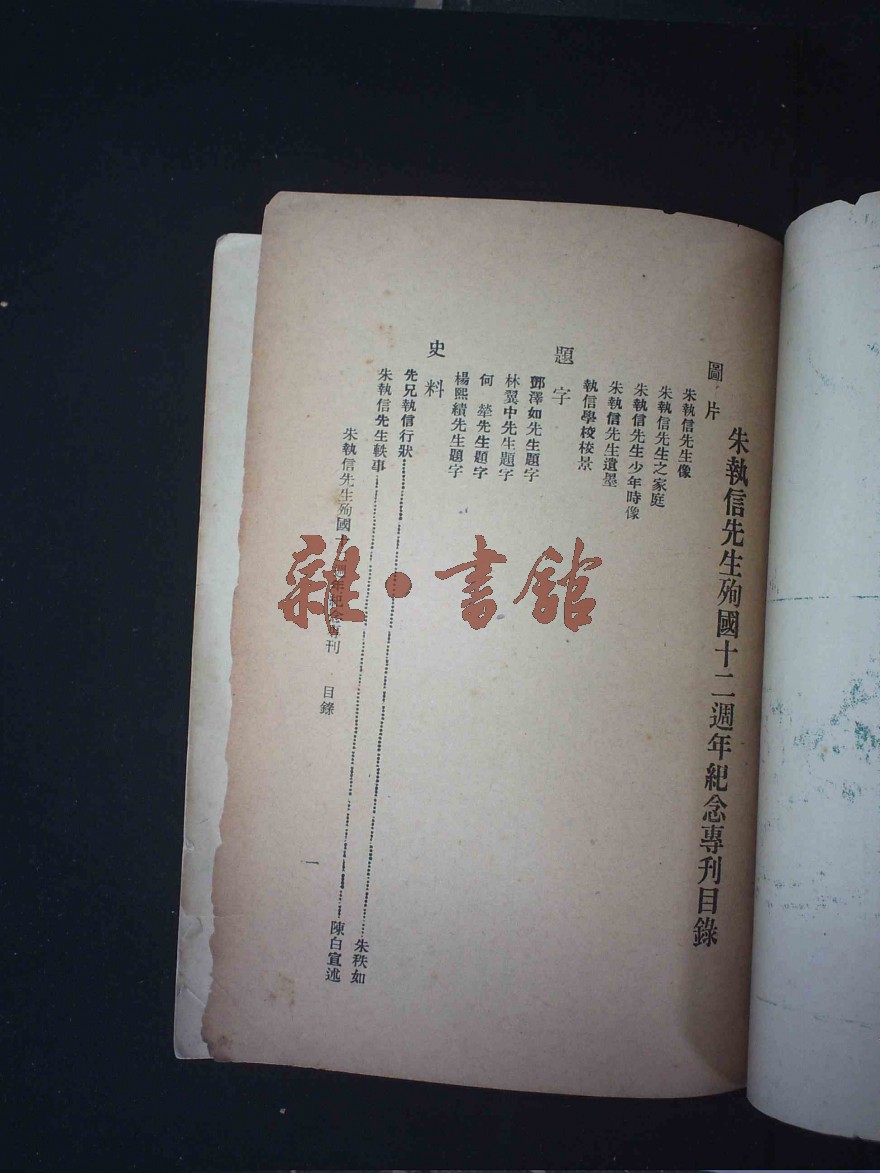 朱執信先生殉國十二週年紀念專刊目錄
圖片
朱執信先生像
朱執信先生之家庭
朱執信先生少年時像
朱執信先生遺墨
執信學校校景
題字
鄧澤如先生題字
林翼中先生題字
何犖先生題字
楊熙績先生題字
史料
先兄執信行狀 朱秩如
朱執信先生軼事 陳白宣述
朱執信先生殉國十二週年紀念專刊 目錄
一
雜·書館